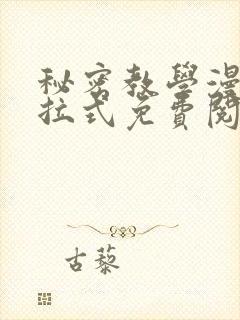 秘密教學漫
拉式免費閱
古藜